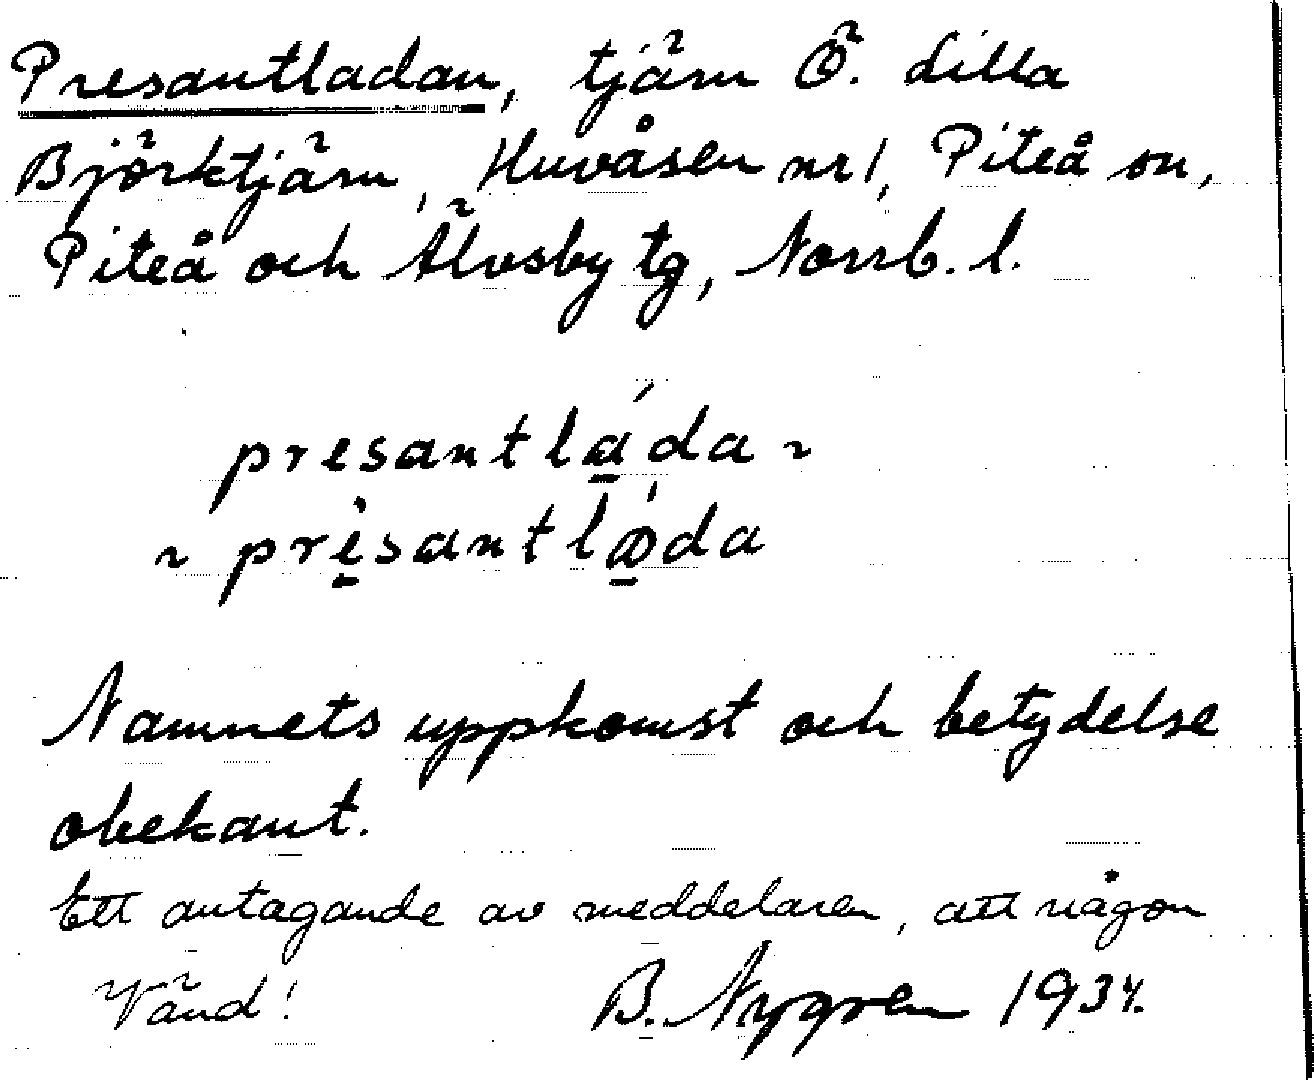 Presantladan, tjärn Ö. Lilla
Björktjärn, Huvåsen nr 1, Piteå sn,
Piteå och Älvsby tg, Norrb. l.
presantlada ~
~ presantlada
Namnets uppkomst och betydelse
obekant.
Ett antagande av meddelaren, att någon
Vänd! B. Nygren 1934.